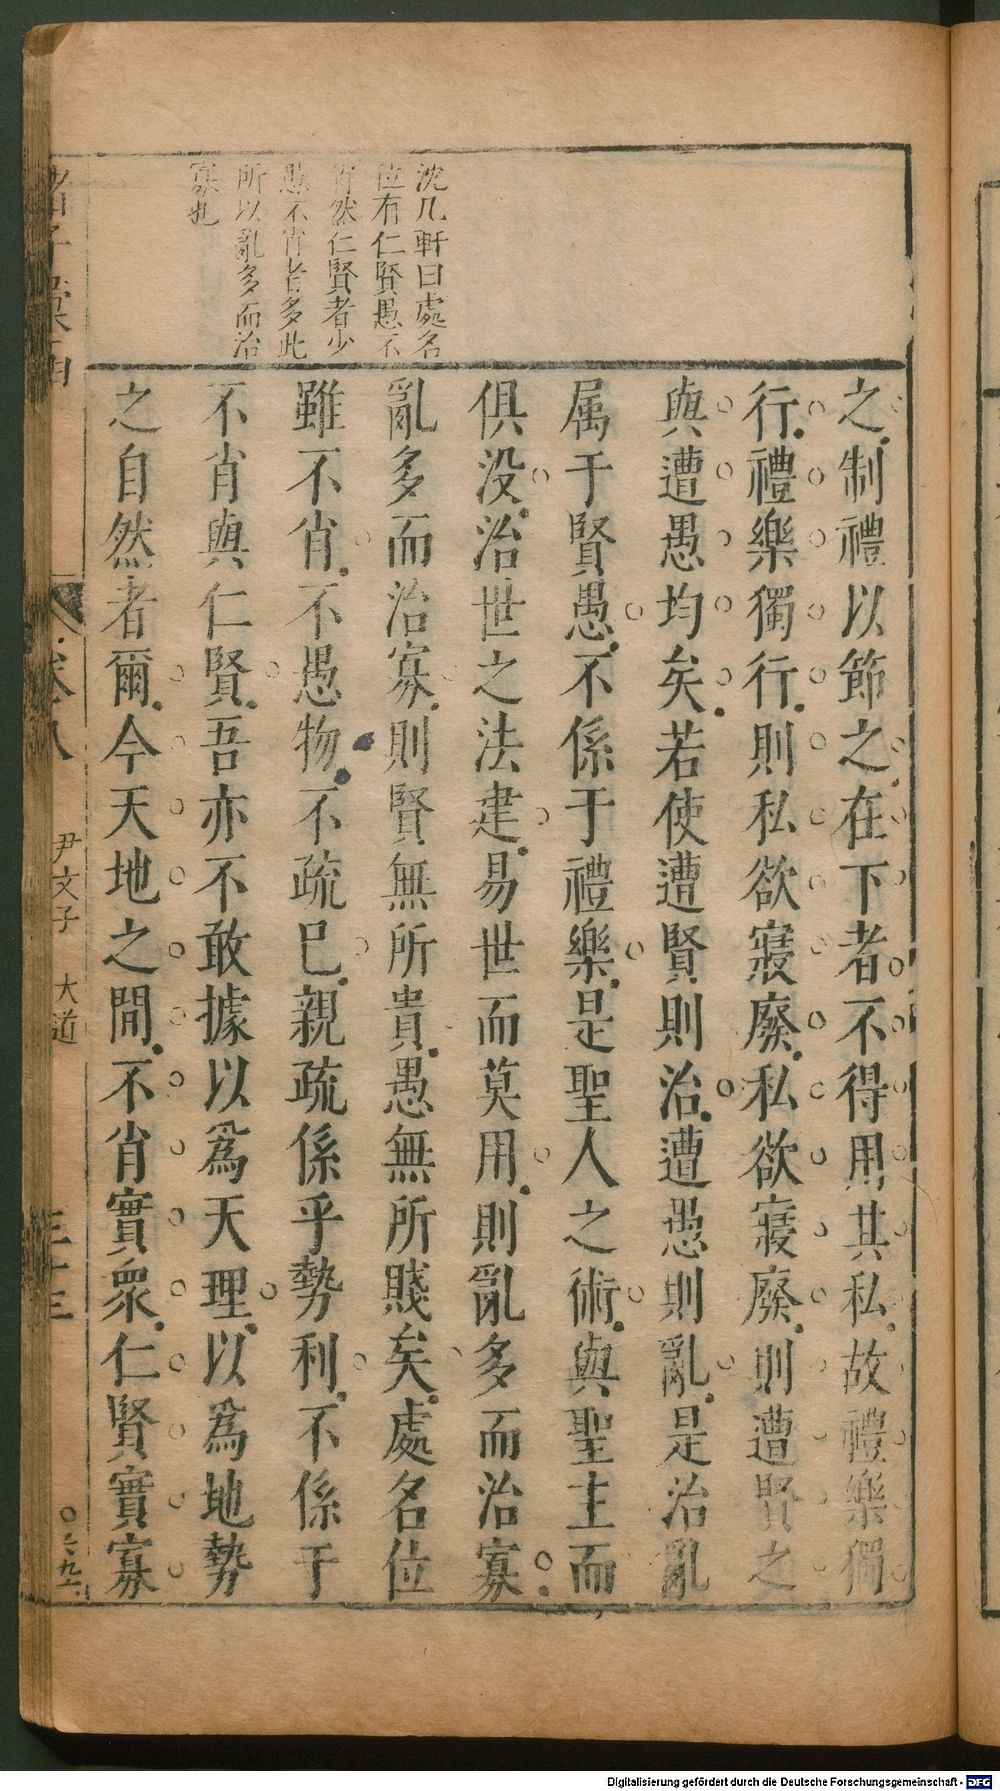 沈几軒曰處名
位有仁賢愚不
肖然仁賢者少
愚不肖者多此
所以亂多而治
寡也
之制禮以節之在下者不得用其私故禮樂獨
行禮樂獨行則私欲寢廢私欲寢廢則遭賢之
與遭愚均矣若使遭賢則治遭愚則亂是治亂
属于賢愚不係于禮樂是聖人之術與聖主而
俱没治世之法建易世而莫用則亂多而治寡
亂多而治寡則賢無所貴愚無所賤矣處名位
雖不肖不愚物不疏巳親疏係乎勢利不係于
不肖與仁賢吾亦不敢據以為天理以為地勢
之自然者爾今天地之間不肖實衆仁賢實寡
諸子彙函
卷八
尹文子 大道
三十三
Digitalisierung gefördert durch die Deutsche Forschungsgemeinschaft - DFG